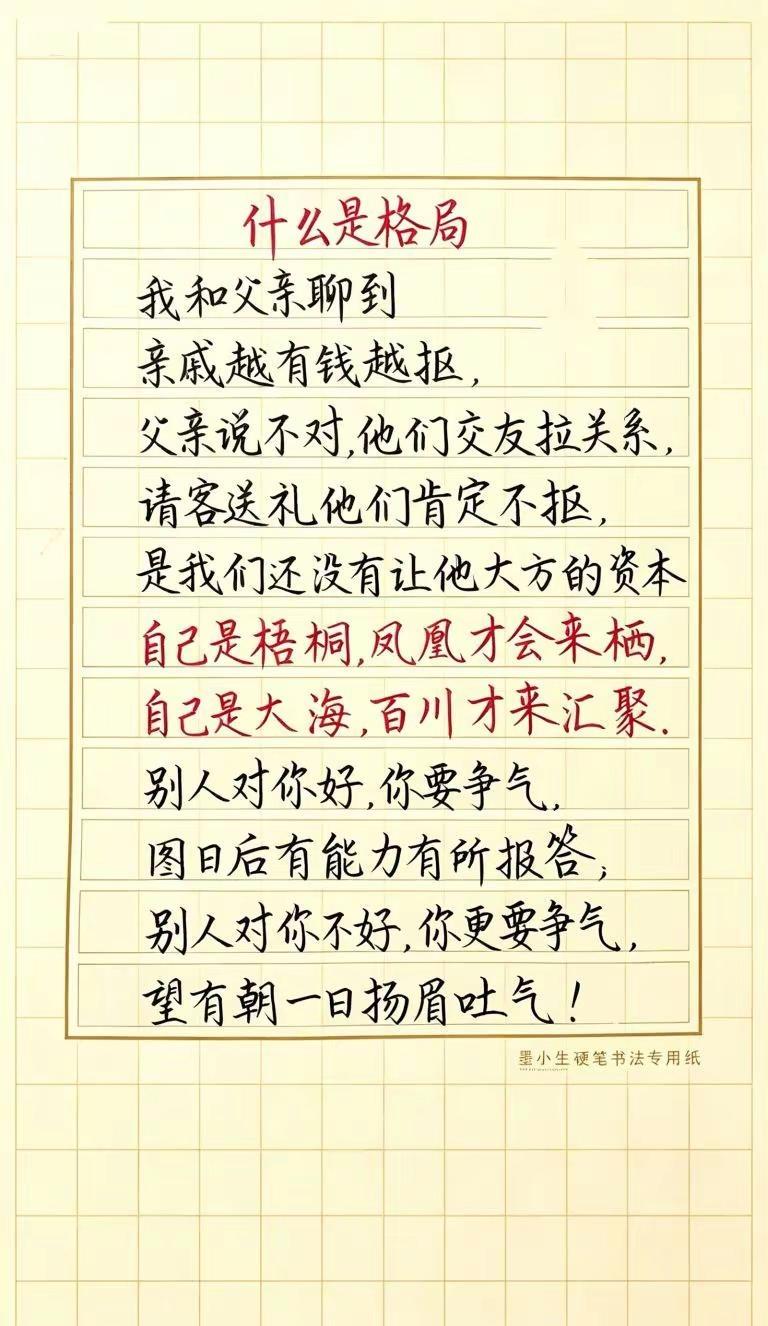 什么是格局
我和父亲聊到
亲戚越有钱越抠,
父亲说不对,他们交友拉关系,
请客送礼他们肯定不抠,
是我们还没有让他大方的资本
自己是梧桐,凤凰才会来栖,
自己是大海,百川才来汇聚.
别人对你好,你要争气,
图日后有能力有所报答;
别人对你不好,你更要争气,
望有朝一日扬眉吐气!
墨小生硬笔书法专用纸